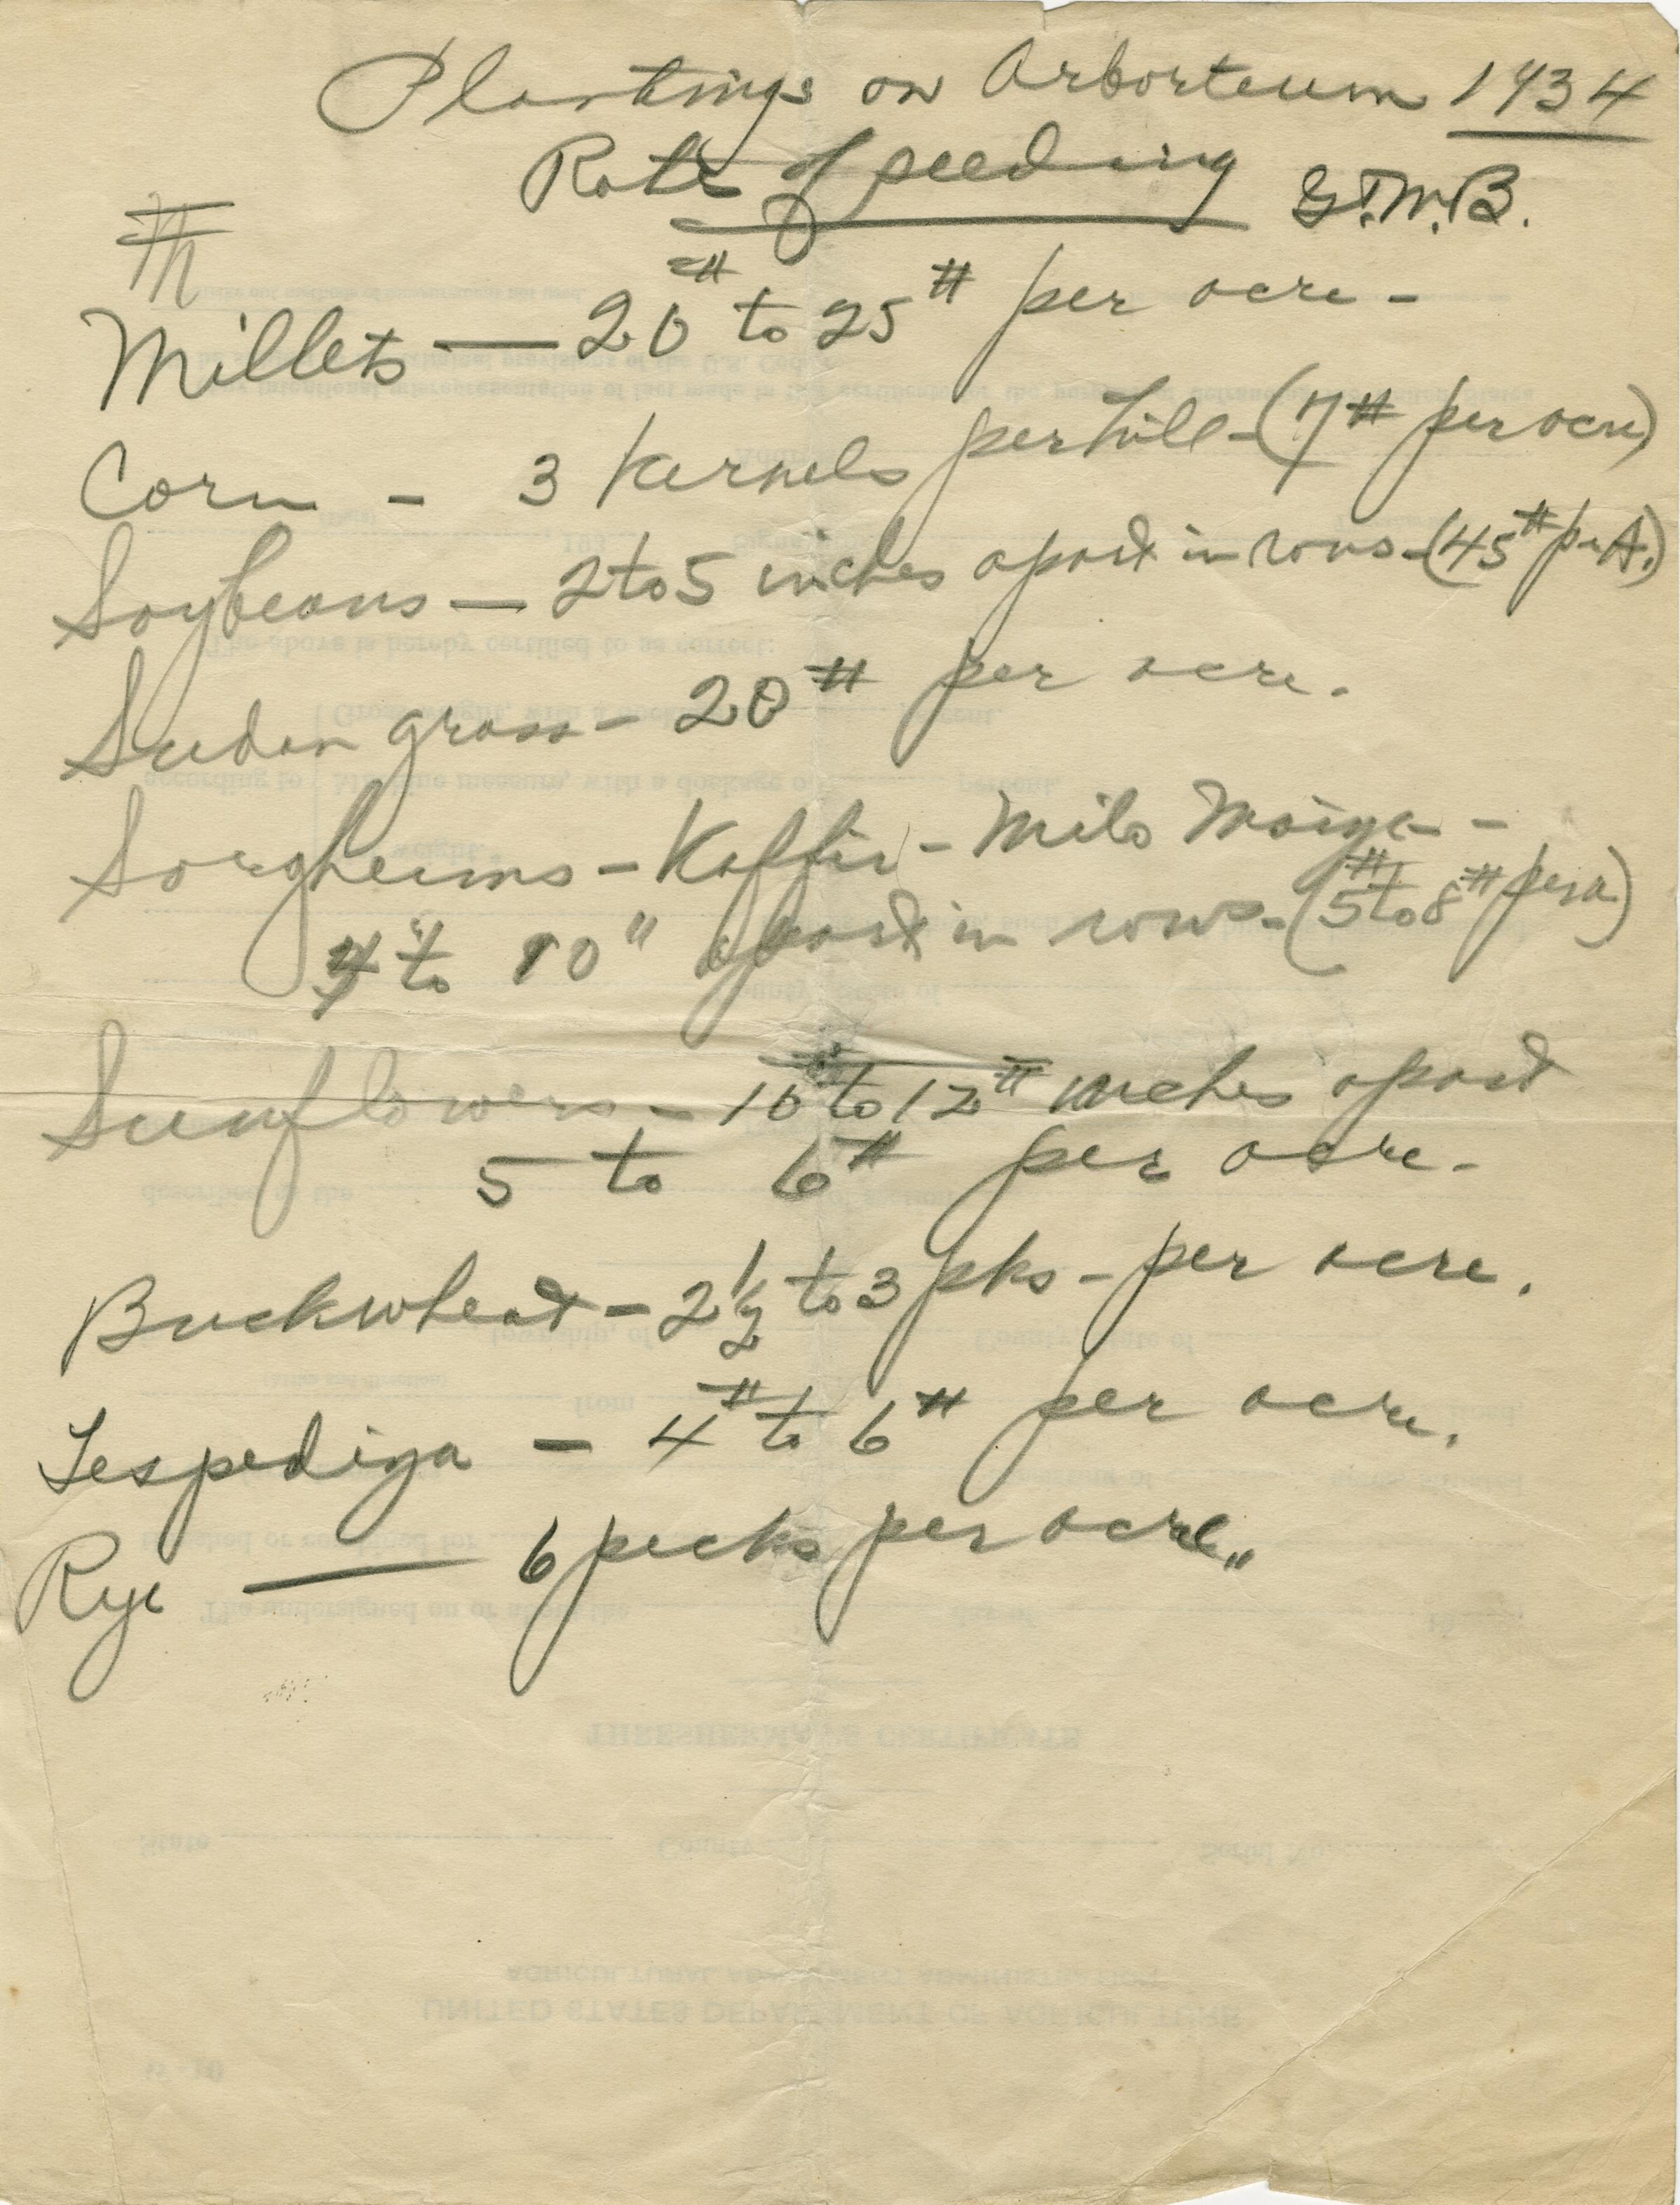 Plantings on Arborteum 1934
Rate of seeding G.T.W.B.
Millets — 20# to 25# per acre -
Corn - 3 Kernels per hill - (7# per acre)
Soybeans — 2 to 5 inches apart in rows - (45# per A.)
Sudan grass - 20# per acre.
Sorgheums - Kaffir - Milo Maize -
4" to 10" apart in rows - (5# to 8# per a)
Sunflowers - 10# to 12# inches apart
5 to 6# per acre -
Buckwheat - 2 1/2 to 3 pks - per acre.
Lespediza - 4# to 6# per acre.
Rye — 6 pecks per acre„
THRESHERMAN'S CERTIFICATE
State County Serial No.
AGRICULTURAL ADJUSTMENT ADMINISTRATION
UNITED STATES DEPARTMENT OF AGRICULTURE